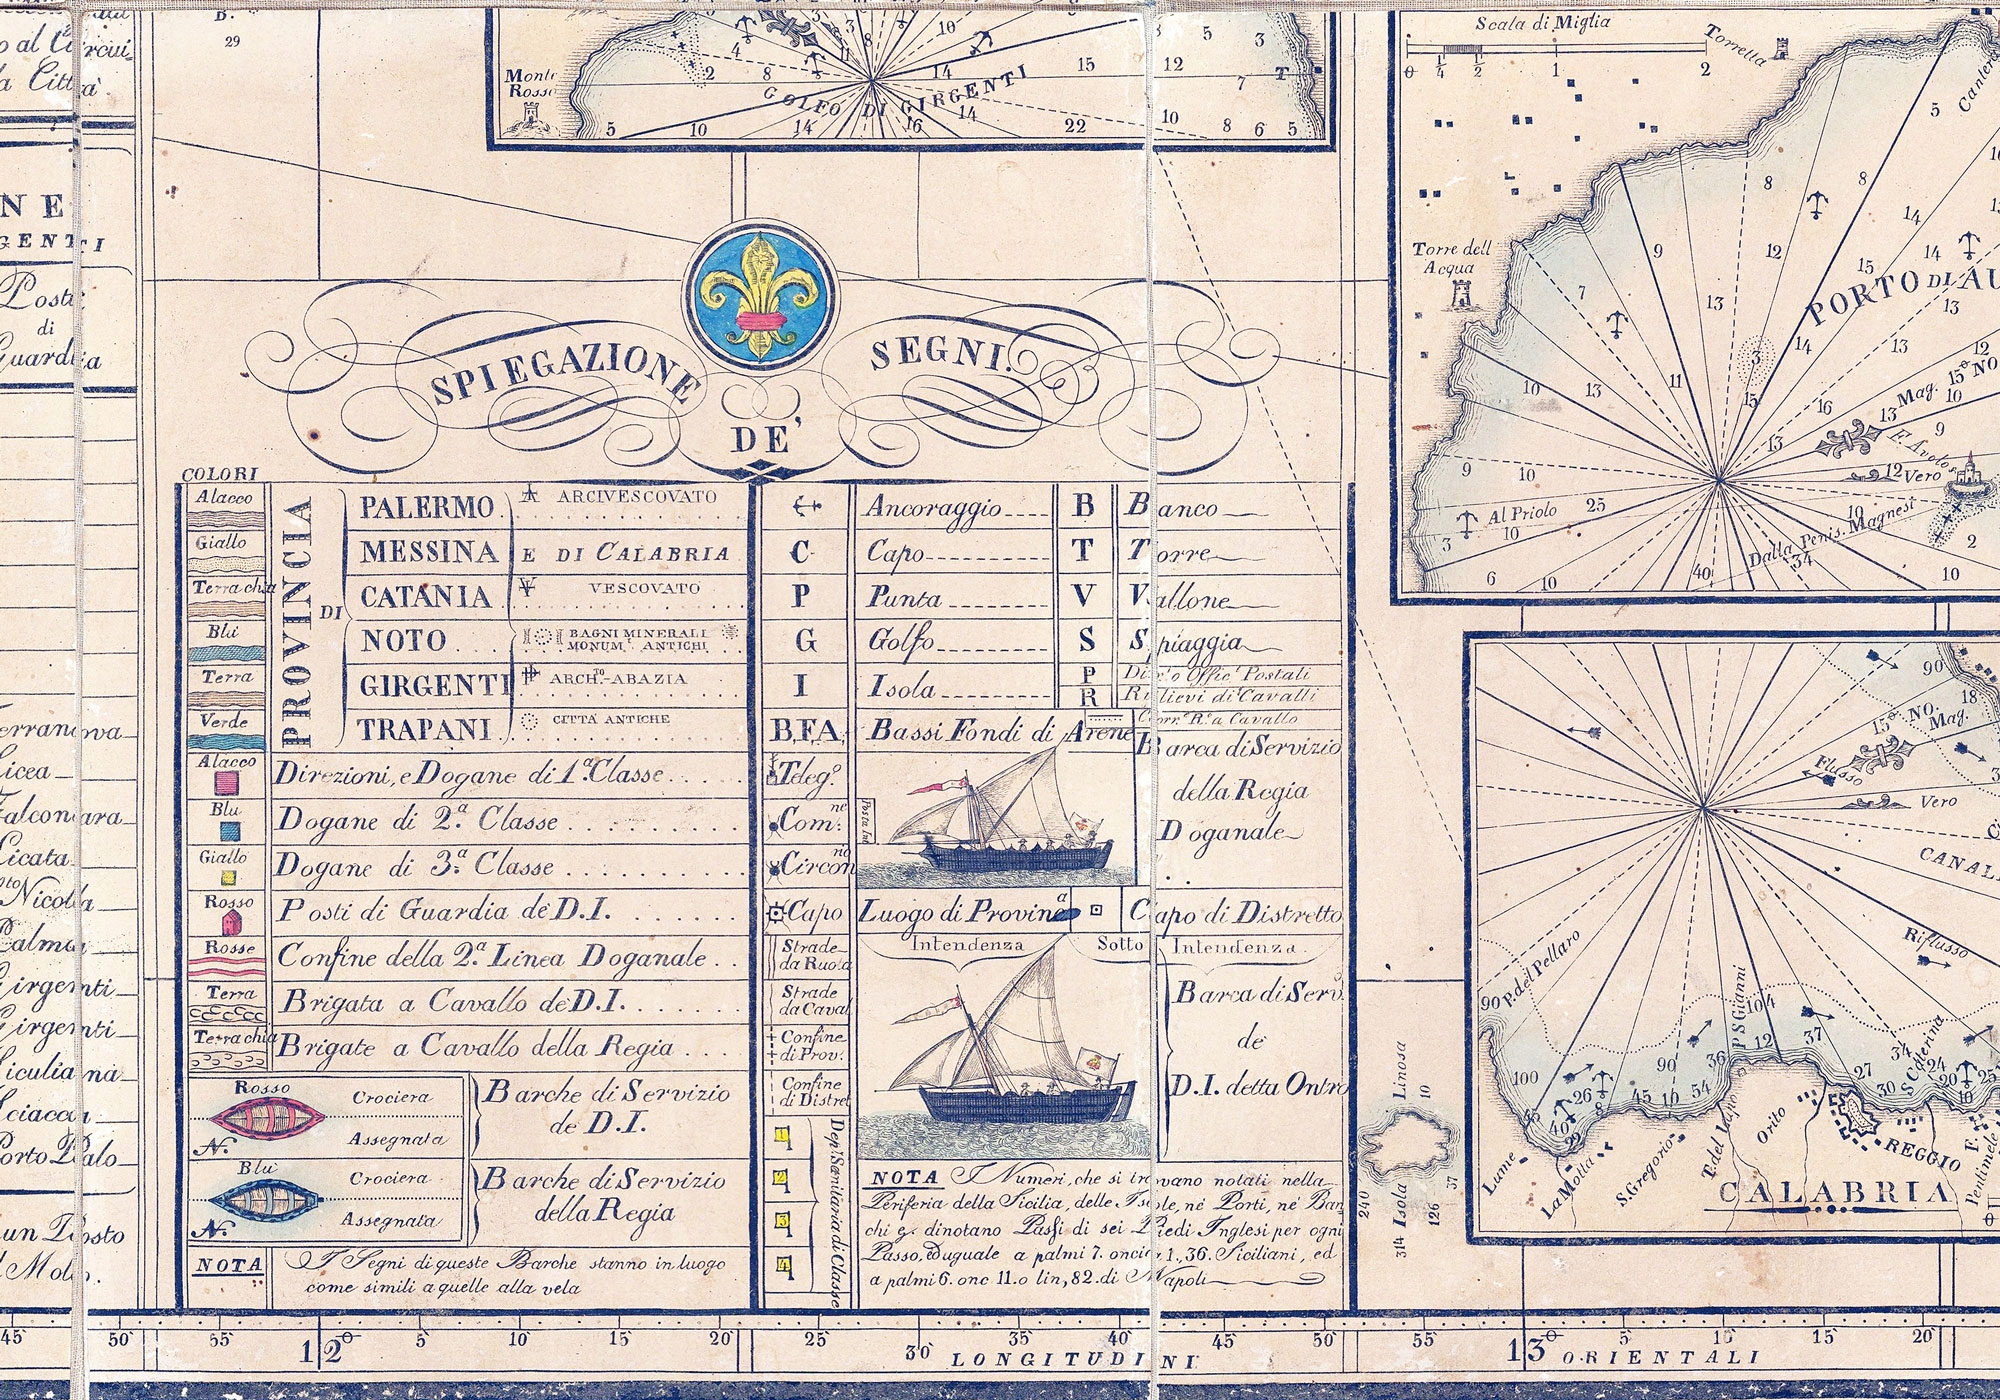 B.
29
NE
GENTI
Posti
di
Guardia
Terranova
Licea
Falconara
Licata
Nicola
Palma
Girgenti
Girgenti
Siculiana
Sciacca
Porto Palo
un Posto
Monte
Rosso
GOLFO DI GIRGENTI
5 10 14 16 14 22 10 8 6 5
2 4 8 14 15 12 7 T
3 10 5 3
SPIEGAZIONE
DE'
SEGNI.
COLORI
Alacco
Giallo
Terra chia
Blu
Terra
Verde
PROVINCIA
DI
PALERMO
MESSINA
CATANIA
NOTO
GIRGENTI
TRAPANI
ARCIVESCOVATO
E DI CALABRIA
VESCOVATO
BAGNI MINERALI
MONUM. ANTICHI
ARCH.TO-ABAZIA
CITTA ANTICHE
Alacco
Direzioni, e Dogane di 1.a Classe
Blu
Dogane di 2.a Classe
Giallo
Dogane di 3.a Classe
Rosso
Posti di Guardia de D.I.
Rosse
Confine della 2.a Linea Doganale
Terra
Brigata a Cavallo de D.I.
Terra chia
Brigate a Cavallo della Regia
Rosso
Crociera
Assegnata
N.
Barche di Servizio
de D.I.
Blu
Crociera
Assegnata
N.
Barche di Servizio
della Regia
NOTA
I Segni di queste Barche stanno in luogo
come simili a quelle alla vela
Ancoraggio
C Capo
P Punta
G Golfo
I Isola
B.F.A. Bassi Fondi di Arene
B Banco
T Torre
V Vallone
S Spiaggia
P Dir.o Offic. Postali
R Rilievi di Cavalli
Corr. R.a a Cavallo
Teleg.o
Com:ne
Circon.rio
Barca di Servizio
della Regia
Doganale
Capo Luogo di Provin.a
Capo di Distretto
Intendenza
Sotto Intendenza.
Strade
da Ruota
Strade
da Caval
Confine
di Prov.
Confine
di Distret
1
2
3
4
Dep: Sanitaria di Classe
Barca di Serv.
de
D.I. detta Ontro
NOTA I Numeri, che si trovano notati nella
Periferia della Sicilia, delle Isole, né Porti, né Ban
chi e. dinotano Passi di sei Piedi Inglesi per ogni
Passo, Euguale a palmi 7. oncie 1,36. Siciliani, ed
a palmi 6. onc 11.o lin, 82. di Napoli
Scala di Miglia
0 1/4 1/2 1 2
Torrella
Torre dell
Acqua
PORTO DI AU
Mag.
15° NO
Vero
F. Avolos
Al Priolo
Dalla Penis. Magnesi
5
8 8
9 12 14
7 13 15 14 13
3 14 13 12
10 13 11 15 16 13 10
9 10 13 12 9
25 10
3 10 34 2
6 10 40 10
90
18
15° NO.
Mag.
Flusso
Vero
CANAL
Riflusso
90 P. del Pellaro
P. S. Gianni
104
S. Catterina
100 26 45 10 54 36 12 37 27 34 30 24 20 10 25
90
Lume
La Motta
S. Gregorio
T. del Lupo
Orito
REGGIO
F. Pentimele
CALABRIA
314 Isola Linosa
240
126
37
10
45' 50' 55' 12° 5' 10' 15' 20' 25' 30' 35' 40' 45' 50' 55' 13° 5' 10' 15' 20'
LONGITUDINI ORIENTALI